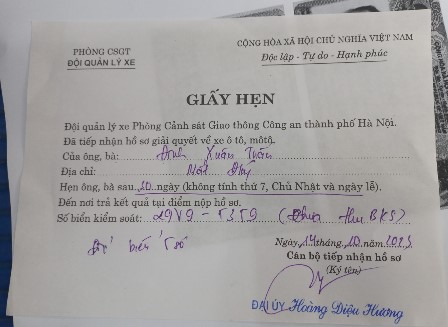 PHÒNG CSGT
ĐỘI QUẢN LÝ XE
CỘNG HÒA XÃ HỘI CHỦ NGHĨA VIỆT NAM
Độc lập - Tự do - Hạnh phúc
GIẤY HẸN
Đội quản lý xe Phòng Cảnh sát Giao thông Công an thành phố Hà Nội.
Đã tiếp nhận hồ sơ giải quyết về xe ô tô, môtô.
Của ông, bà: Đinh Xuân
Địa chỉ:
Hẹn ông, bà sau 30 ngày (không tính thứ 7, Chủ Nhật và ngày lễ).
Đến nơi trả kết quả tại điểm nộp hồ sơ.
Số biển kiểm soát: 29V9 - 5359 (Chưa thu BKS)
biển 5 số
Ngày 14 tháng 10 năm 2023
Cán bộ tiếp nhận hồ sơ
(Ký tên)
ĐẠI ÚY Hoàng Diệu Hương